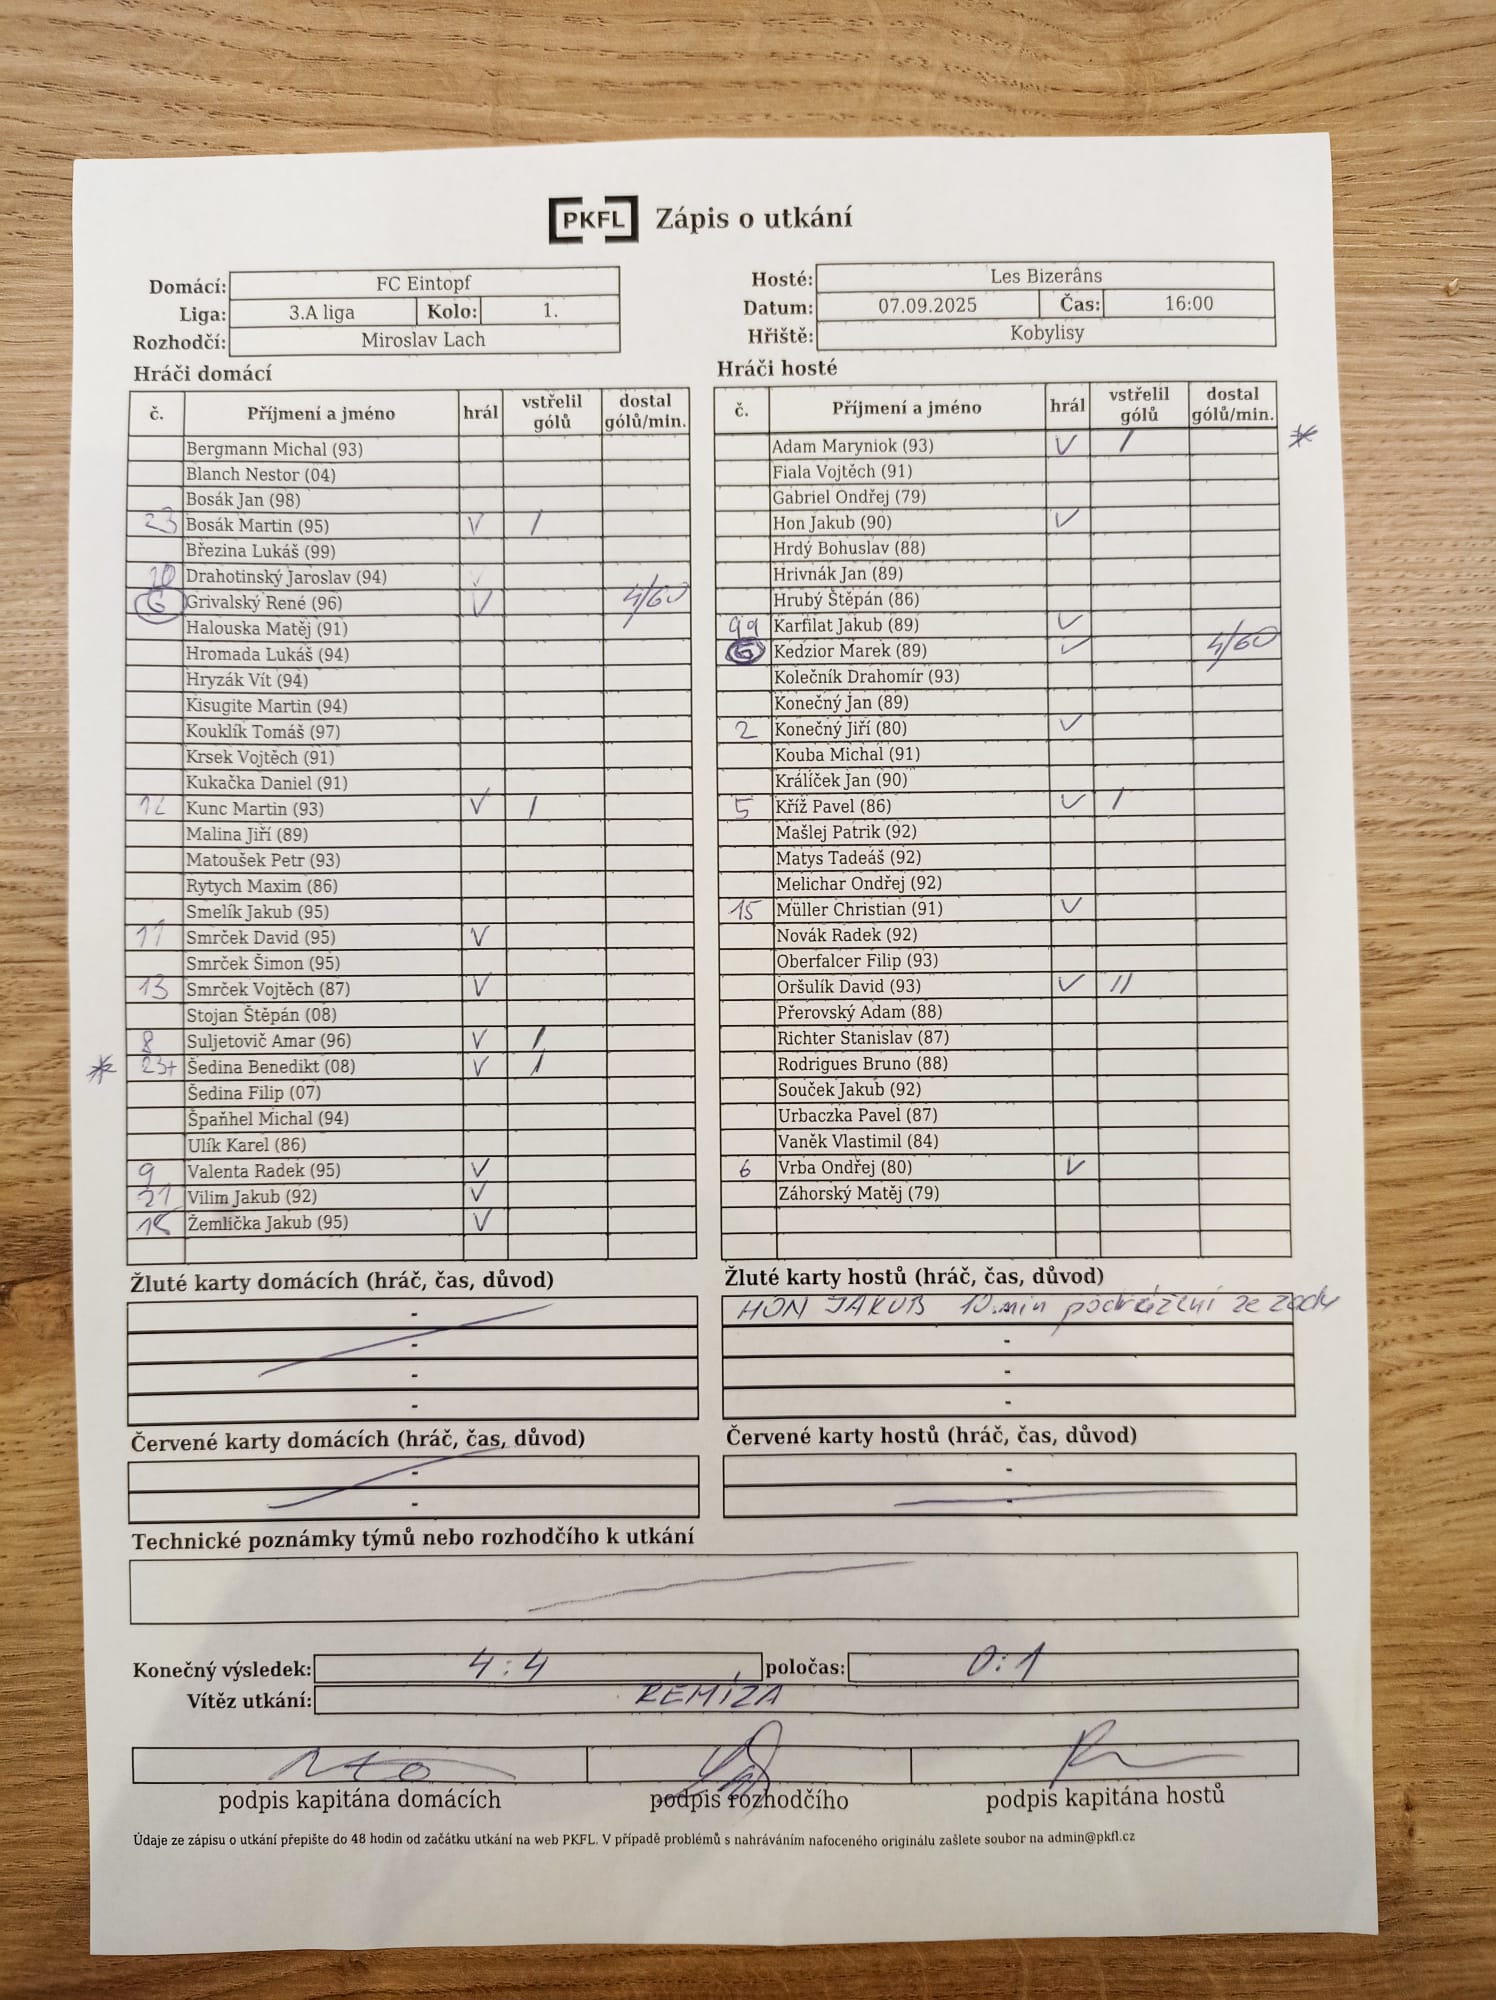 PKFL Zápis o utkání
Domácí: FC Eintopf
Liga: 3.A liga Kolo: 1.
Rozhodčí: Miroslav Lach
Hosté: Les Bizerâns
Datum: 07.09.2025 Čas: 16:00
Hřiště: Kobylisy
Hráči domácí
č. Příjmení a jméno hrál vstřelil gólů dostal gólů/min.
Bergmann Michal (93)
Blanch Nestor (04)
Bosák Jan (98)
23 Bosák Martin (95) V /
Březina Lukáš (99)
10 Drahotinský Jaroslav (94) V
G Grivalský René (96) V 4/60
Halouska Matěj (91)
Hromada Lukáš (94)
Hryzák Vít (94)
Kisugite Martin (94)
Kouklík Tomáš (97)
Krsek Vojtěch (91)
Kukačka Daniel (91)
12 Kunc Martin (93) V /
Malina Jiří (89)
Matoušek Petr (93)
Rytych Maxim (86)
Smelík Jakub (95)
11 Smrček David (95) V
Smrček Šimon (95)
13 Smrček Vojtěch (87) V
Stojan Štěpán (08)
8 Suljetovič Amar (96) V /
* 23+ Šedina Benedikt (08) V /
Šedina Filip (07)
Špaňhel Michal (94)
Ulík Karel (86)
9 Valenta Radek (95) V
21 Vilim Jakub (92) V
Žemlička Jakub (95) V
Hráči hosté
č. Příjmení a jméno hrál vstřelil gólů dostal gólů/min.
Adam Maryniok (93) V / *
Fiala Vojtěch (91)
Gabriel Ondřej (79)
Hon Jakub (90) V
Hrdý Bohuslav (88)
Hrivnák Jan (89)
Hrubý Štěpán (86)
99 Karfilat Jakub (89) V
G Kedzior Marek (89) V 4/60
Kolečník Drahomír (93)
Konečný Jan (89)
2 Konečný Jiří (80) V
Kouba Michal (91)
Králíček Jan (90)
5 Kříž Pavel (86) V /
Mašlej Patrik (92)
Matys Tadeáš (92)
Melichar Ondřej (92)
15 Müller Christian (91) V
Novák Radek (92)
Oberfalcer Filip (93)
Oršulík David (93) V //
Přerovský Adam (88)
Richter Stanislav (87)
Rodrigues Bruno (88)
Souček Jakub (92)
Urbaczka Pavel (87)
Vaněk Vlastimil (84)
6 Vrba Ondřej (80) V
Záhorský Matěj (79)
Žluté karty domácích (hráč, čas, důvod)
-
-
-
-
Žluté karty hostů (hráč, čas, důvod)
HON JAKUB 10.min podrážení ze zadu
-
-
-
Červené karty domácích (hráč, čas, důvod)
-
-
Červené karty hostů (hráč, čas, důvod)
-
-
Technické poznámky týmů nebo rozhodčího k utkání
Konečný výsledek: 4:4 poločas: 0:1
Vítěz utkání: REMÍZA
podpis kapitána domácích podpis rozhodčího podpis kapitána hostů
Údaje ze zápisu o utkání přepište do 48 hodin od začátku utkání na web PKFL. V případě problémů s nahráváním nafoceného originálu zašlete soubor na admin@pkfl.cz